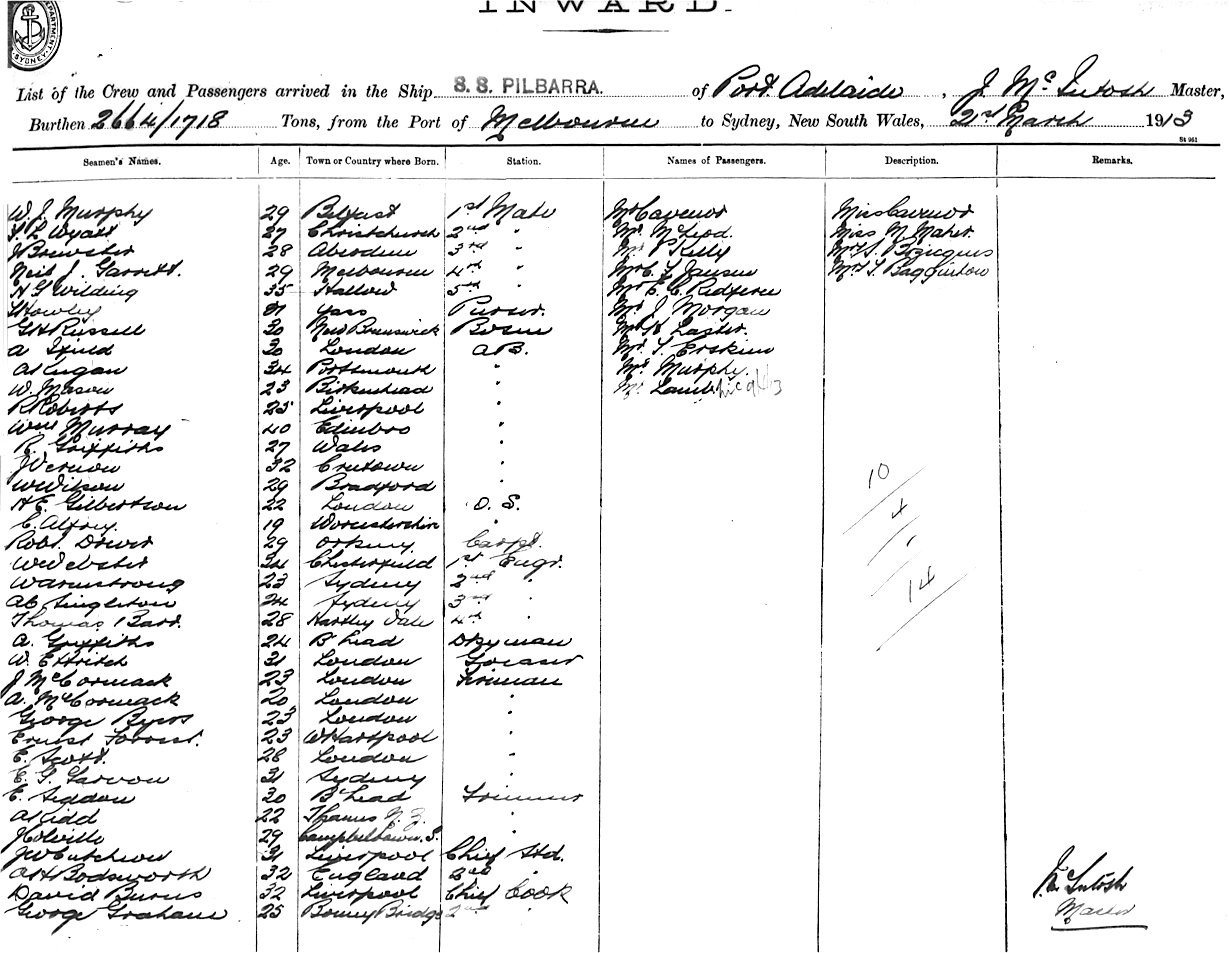 INWARD.
DEPARTMENT. SYDNEY
List of the Crew and Passengers arrived in the Ship S. S. PILBARRA. of Port Adelaide, J. McIntosh Master,
Burthen 2664/1718 Tons, from the Port of Melbourne to Sydney, New South Wales, 21st March 1913
St 961
Seamen's Names. Age. Town or Country where Born. Station. Names of Passengers. Description. Remarks.
W. J. Murphy 29 Belfast 1st Mate Mr Cavenor Miss Cavenor
Wyatt 27 Christchurch 2nd " Mr. McLeod. Miss N. Maher.
J Brewster 28 Aberdeen 3rd " Mr P Kelly
Neil J. Garrett. 29 Melbourne 4th " Mr C. Jansen
H G Wilding 35 Hallow 5th " Mr E. C. Redfern
Howley Yass Purser. Mr J. Morgan
G H Russell 30 New Brunswick Bosun
A 30 London A.B. Mr T. Erskine
34 Portsmouth " Mr Murphy.
W. Mason 23 Birkenhead " Mr Lamb
R Roberts 25 Liverpool "
Wm Murray 40 Edinbro "
R. Griffiths 27 Wales "
J Vernon 32 "
W Wilson 29 Bradford " 10
H E. Gilbertson 22 London O. S. 4
C. 19 Worcestershire "
Robt. Drever 29 Orkney Carpt.
W Webster 34 Chesterfield 1st Engr.
W Armstrong 23 Sydney 2nd " 14
A C Singleton 24 Sydney 3rd "
Thomas Barr. 28 Hartley Vale 4th "
A. Griffiths 24 B'head Dkyman
W. E 31 London Greaser
J McCormack 23 London Fireman
A. McCormack 20 London "
George 23 London "
Ernest Forrest. 23 W Hartpool "
E. Scott. 28 London "
E. G. 31 Sydney "
E. Seddon 30 B'head Trimmer
A Kidd 22 Thames N. Z. "
29 Campbeltown. S. "
J W Cutcheon 31 Liverpool Chief Std.
A H Bodsworth 32 England 2nd "
David Burns 32 Liverpool Chief Cook
George Graham 25 2nd "
McIntosh
Master